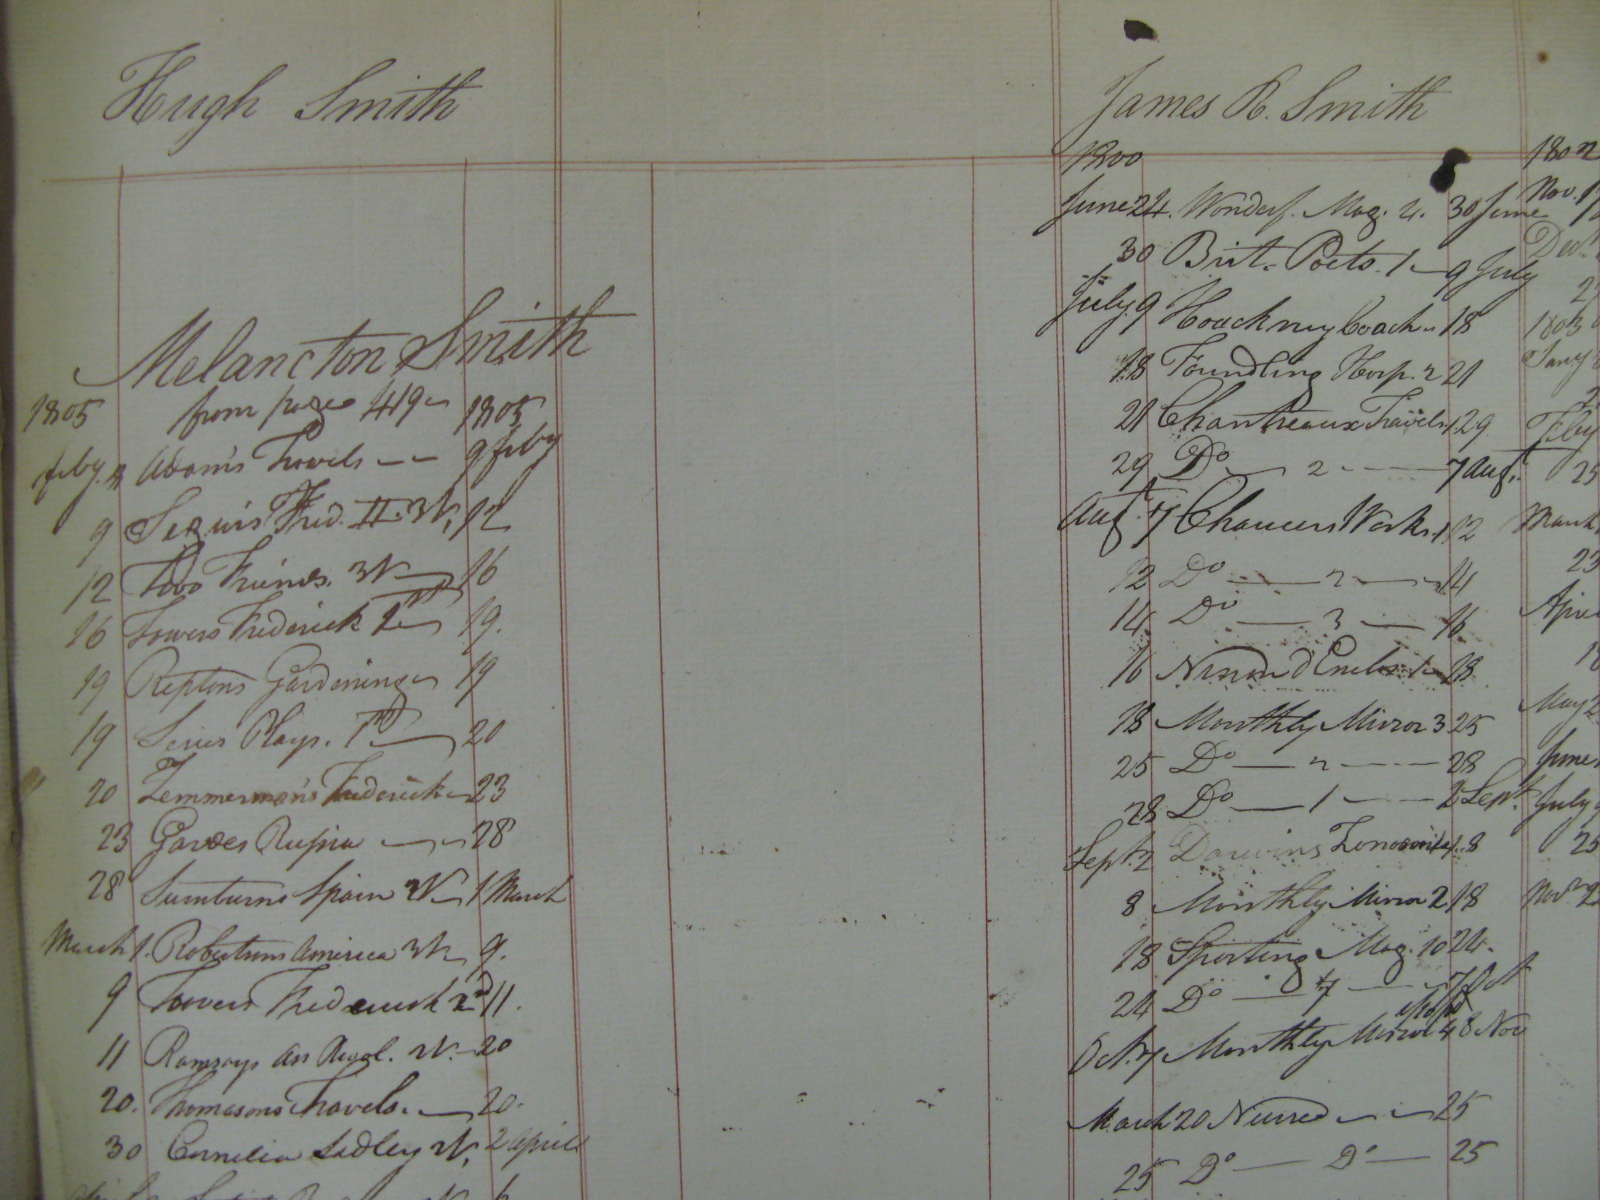 Hugh Smith
Melancton Smith
1805 from page 419 1805
feby. Adam's Travels 9 feby
9 Segurs Fred. II. 12
12 Two Friends. 16
16 Towers Frederick 19.
19 Reptons Gardening 19
19 Series Plays. 1st 20
20 Zemmerman's Frederick 23
23 Russia 28
28 Spain 1 March
March 1. Robertsons America 9.
9 Towers Frederick 2d 11.
11 Ramsays Am Revol. 20
20. Thomsons Travels. 20.
30 Cornelia Sedley 2 April
James R. Smith
1800
June 24. Wonderf. Mag. 30 June
30 Brit. Poets. 1 9 July
July 9 Hoackney Coach 18
18 Foundling Hosp. 2 21
21 Chantreaux Travels 1 29
29 Do 2 7 Aug.
Aug. 7 Chaucers Works. 1 12
12 Do 2 14
14 Do 3 16
16 18
18 Monthly Mirror 3 25
25 Do 2 28
28 Do 1 2 Sept.
Sept. 2 Darwins 8
8 Monthly Mirror 2 18
18 Sporting Mag. 10 24.
24 Do 7 7 Oct
Oct. 7 Monthly Mirror 4 8 Nov
March 20 25
25 Do Do 25
1802
Nov. 17
1803
Feby
25
March
23
May 2
June
July
25
Nov. 2